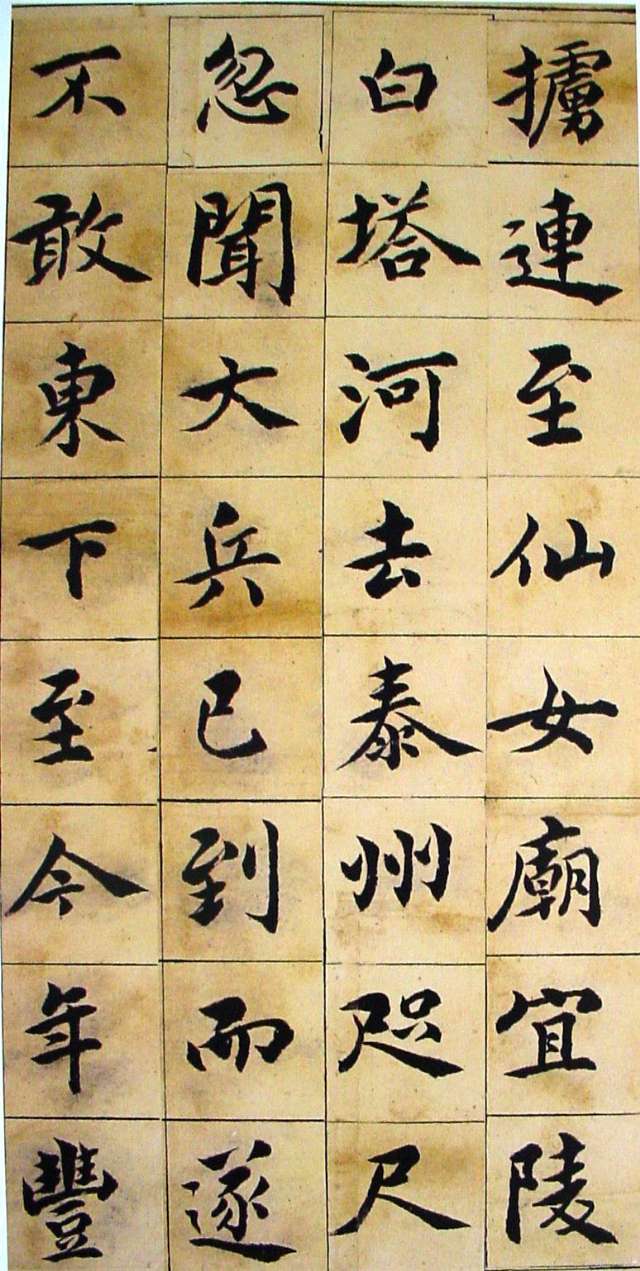 擄連至仙女廟宜陵
白塔河去泰州咫尺
忽聞大兵已到而遂
不敢東下至今年豐